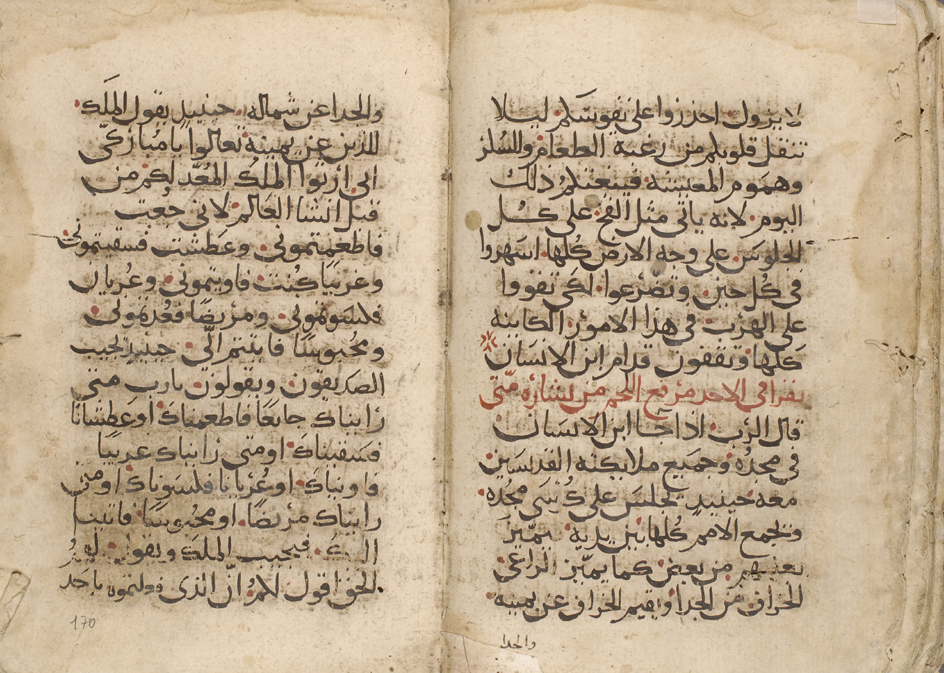 لا يزول. احذروا على نفوسكم ليلا
تثقل قلوبكم من رغبة الطعام والسكر
وهموم المعيشة فيبغتكم ذلك
اليوم. لانه ياتي مثل الفخ على كل
الجلوس على وجه الارض كلها. اسهروا
في كل حين. وتضرعوا لكي تقووا
على الهرب في هذا الامور الكاينه
كلها وتقفون قدام ابن الانسان
يقرا في الاحد مرفع اللحم من بشارة متى
قال الرب. اذا جا ابن الانسان
في مجده وجميع ملايكته القديسين
معه حينيد يجلس على كرسي مجده.
وتجمع الامم كلها بين يديه. فيميز
بعضهم من بعض كما يميز الراعي
الخراف من الجدا ويقيم الخراف عن يمينه
والجدا
والجدا عن شماله. حينيد يقول الملك.
للذين عن يمينه تعالوا يا مباركي
ابي ارثوا الملك المعد لكم من
قبل انشا العالم. لاني جعت
فاطعمتموني. وعطشت فسقيتموني
وغريبا كنت فاويتموني. وعريان
فكسوتموني. ومريضا فعدتموني.
ومحبوسا فاتيتم الي. حينيد يجيب
الصديقون. ويقولون. يا رب متى
رايناك جايعا فاطعمناك او عطشانا
فسقيناك. او متى رايناك غريبا
فاويناك. او عريانا فكسوناك. او متى
رايناك مريضا. او محبوسا. فاتينا
اليك. فيجيب الملك ويقول. لهم
الحق اقول لكم. ان الذي فعلتموه باحد
170